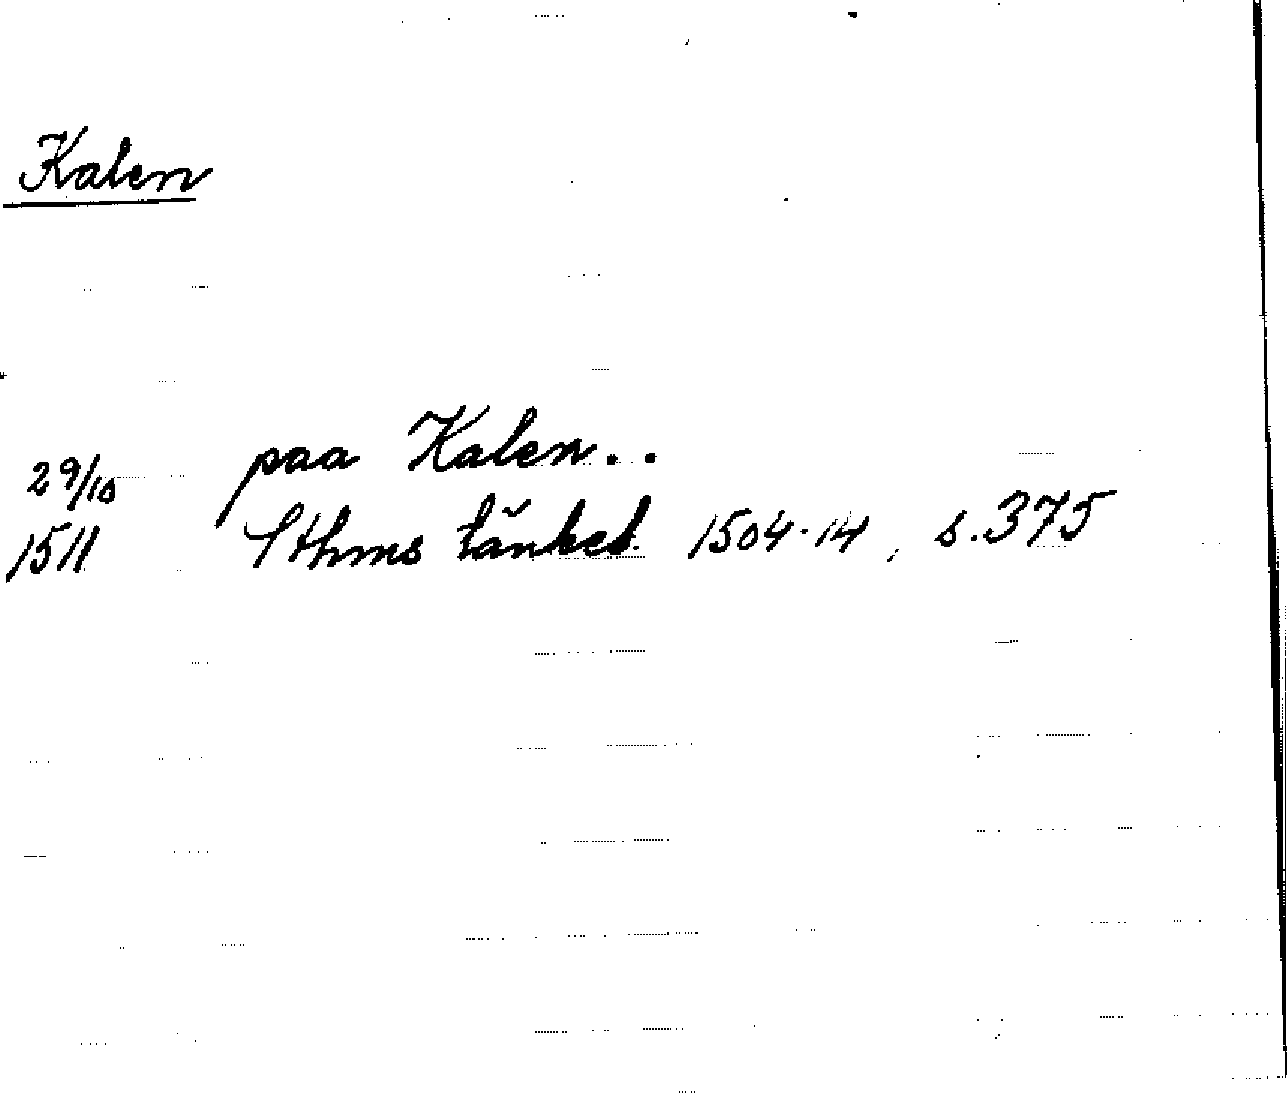 Kalen
29/10 paa Kalen..
1511 Sthms tänkeb. 1504-14, s. 375